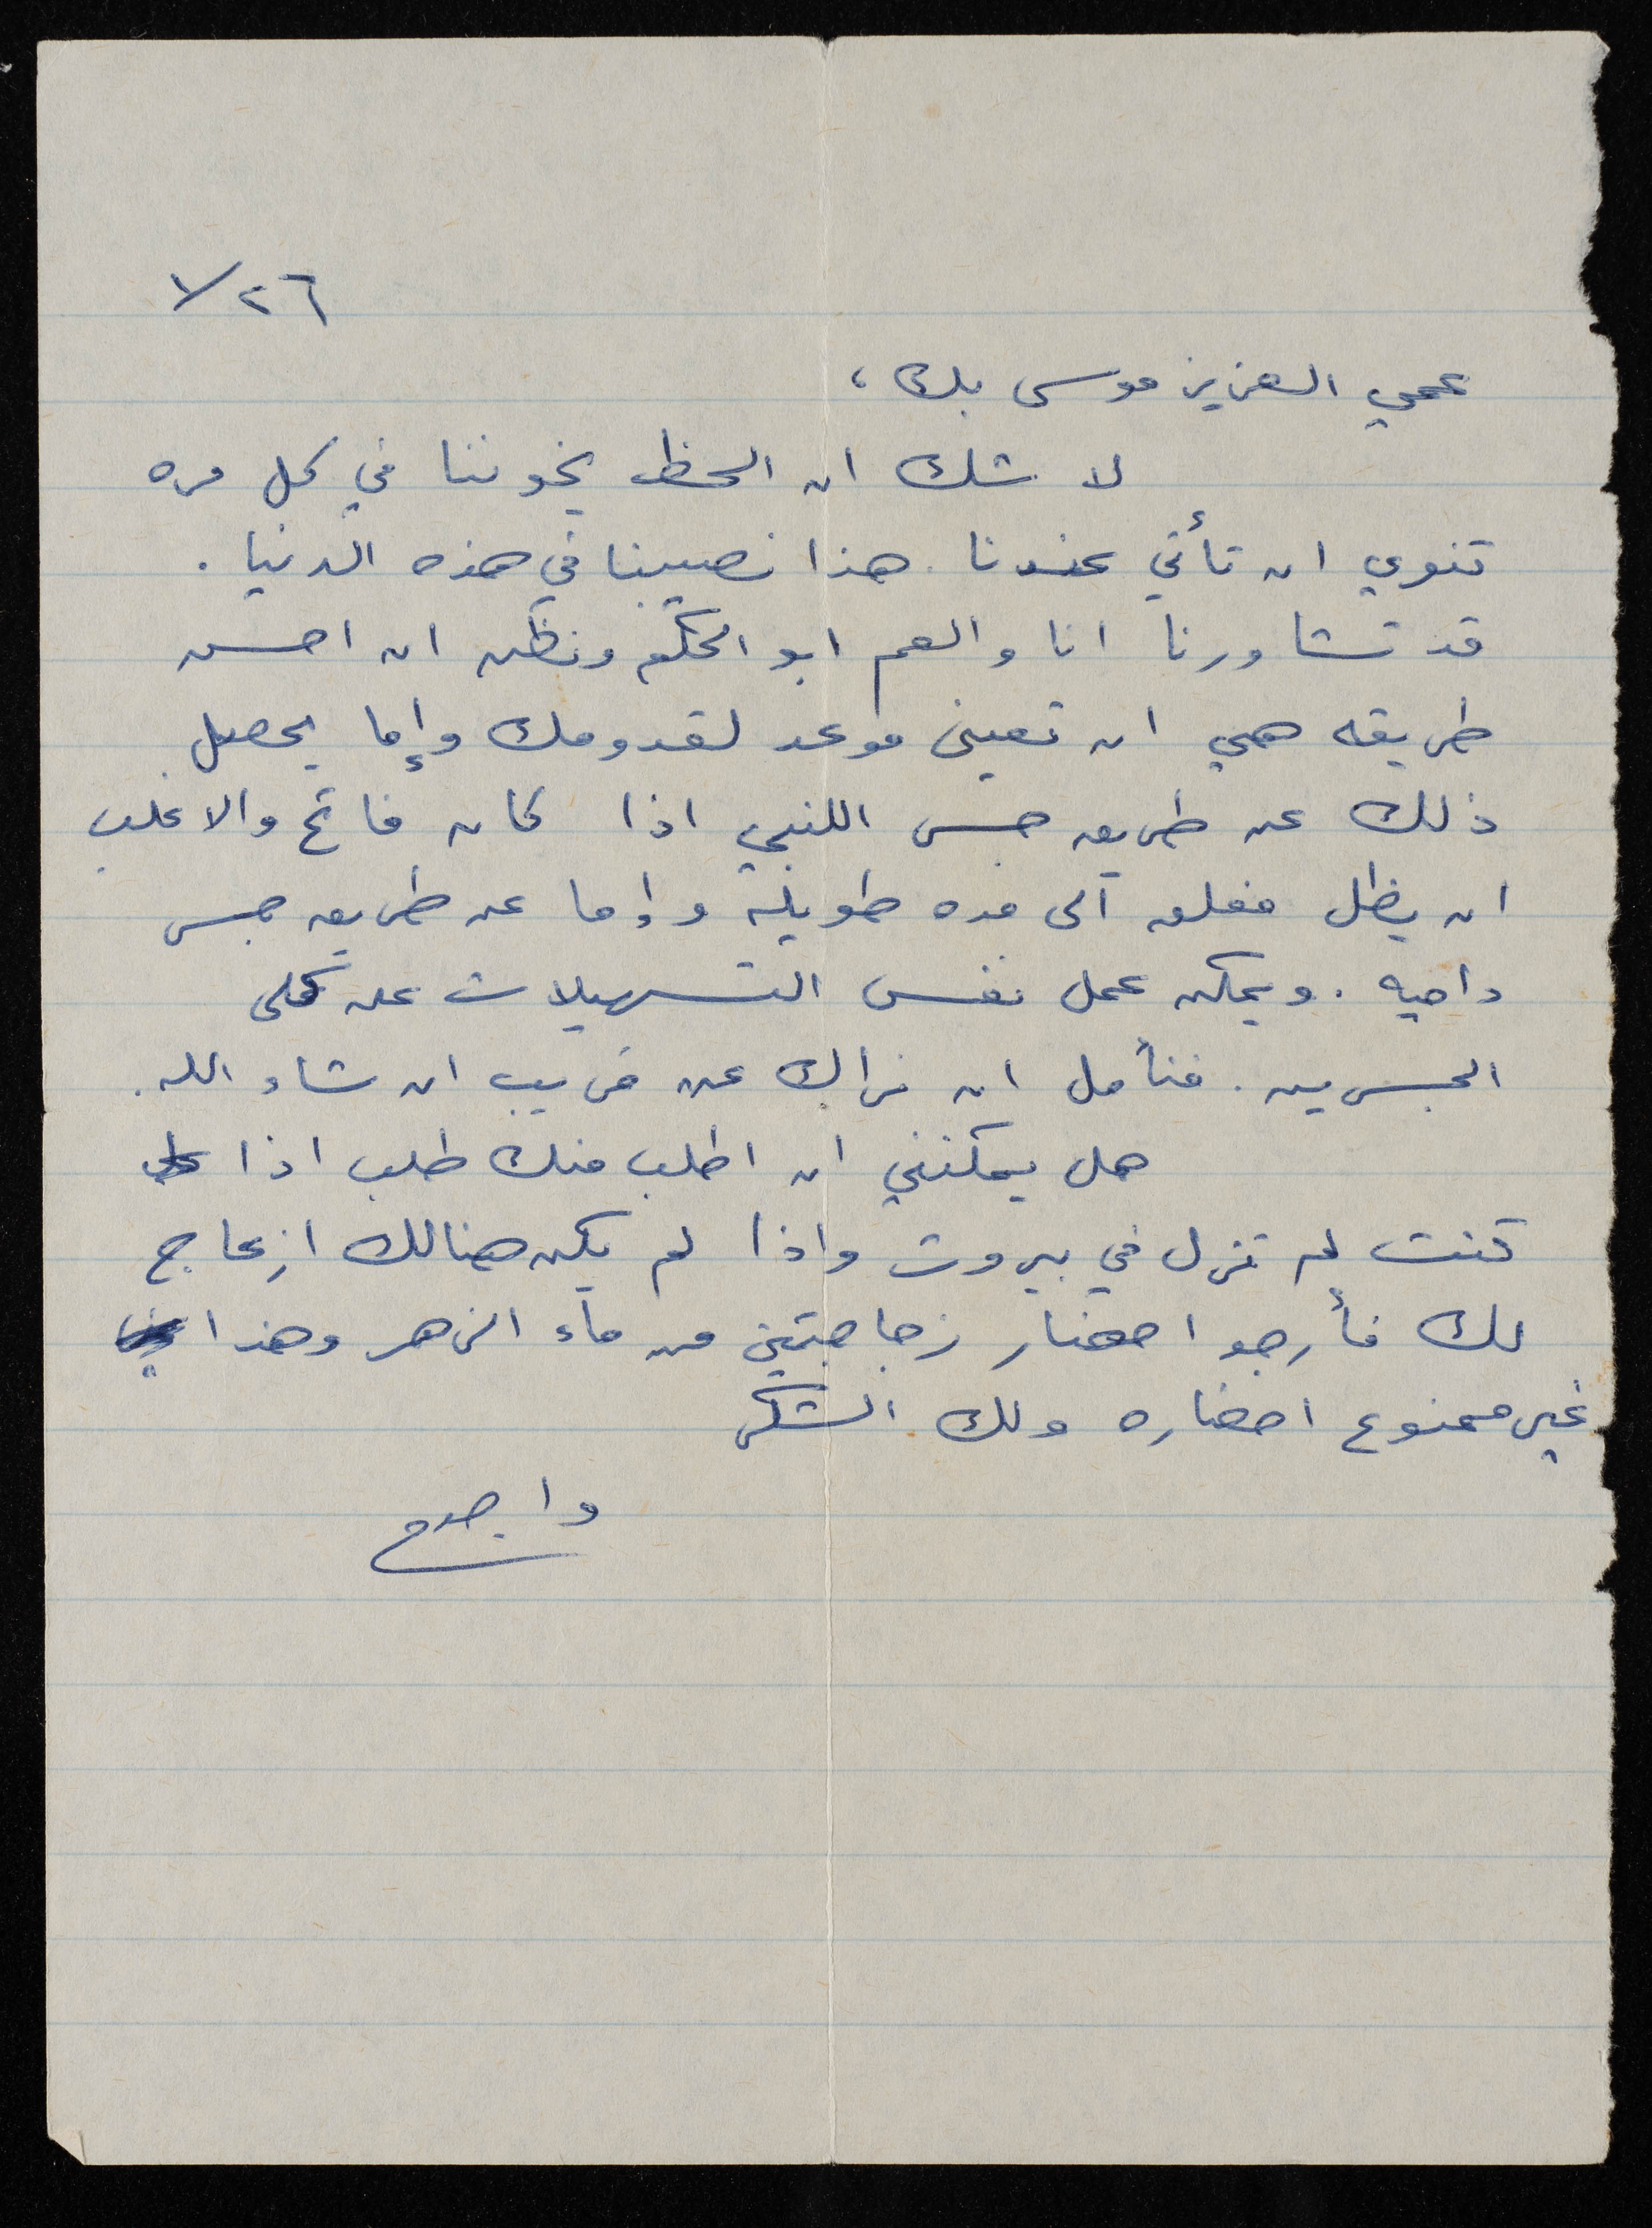 ٢٦/٧
عمي العزيز موسى بك،
لا شك ان الحظ يخوننا في كل مره
تنوي ان تأتي عندنا. هذا نصيبنا في هذه الدنيا.
قد تشاورنا انا والعم ابو الحكم ونظن ان احسن
طريقه هي ان تعين موعد لقدومك وإما يحصل
ذلك عن طريق جسر اللنبي اذا كان فاتح والاغلب
ان يظل مغلق الى مده طويلة وإما عن طريق جسر
داميه. ويمكن عمل نفس التسهيلات على كلى
الجسرين. فنأمل ان نراك عن قريب ان شاء الله.
هل يمكنني ان اطلب منك طلب اذا
كنت لم تزل في بيروت واذا لم يكن هنالك ازعاج
لك فأرجو احضار زجاجتين من ماء الزهر وهذا
غير ممنوع احضاره ولك الشكر